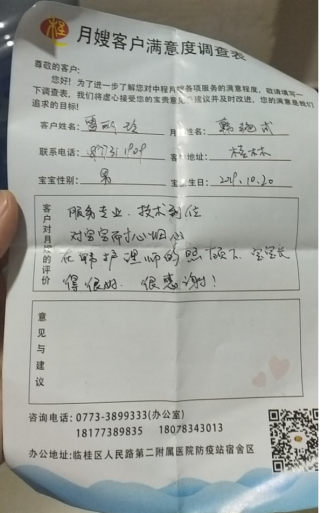 月嫂客户满意度调查表
尊敬的客户:
您好!为了进一步了解您对中程月嫂各项服务的满意程度,敬请填写一
下调查表,我们将虚心接受您的宝贵意见和建议并及时改进,您的满意是我们
追求的目标!
客户姓名: 月嫂姓名:
联系电话: 客户地址: 桂林
宝宝性别: 男 宝宝生日: 2019.10.20
客户对月嫂的评价
服务专业,技术到位
对宝宝耐心细心
在韩护理师的照顾下,宝宝长
得很好,很感谢!
意见与建议
咨询电话:0773-3899333(办公室)
18177389835 18078343013
办公地址:临桂区人民路第二附属医院防疫站宿舍区